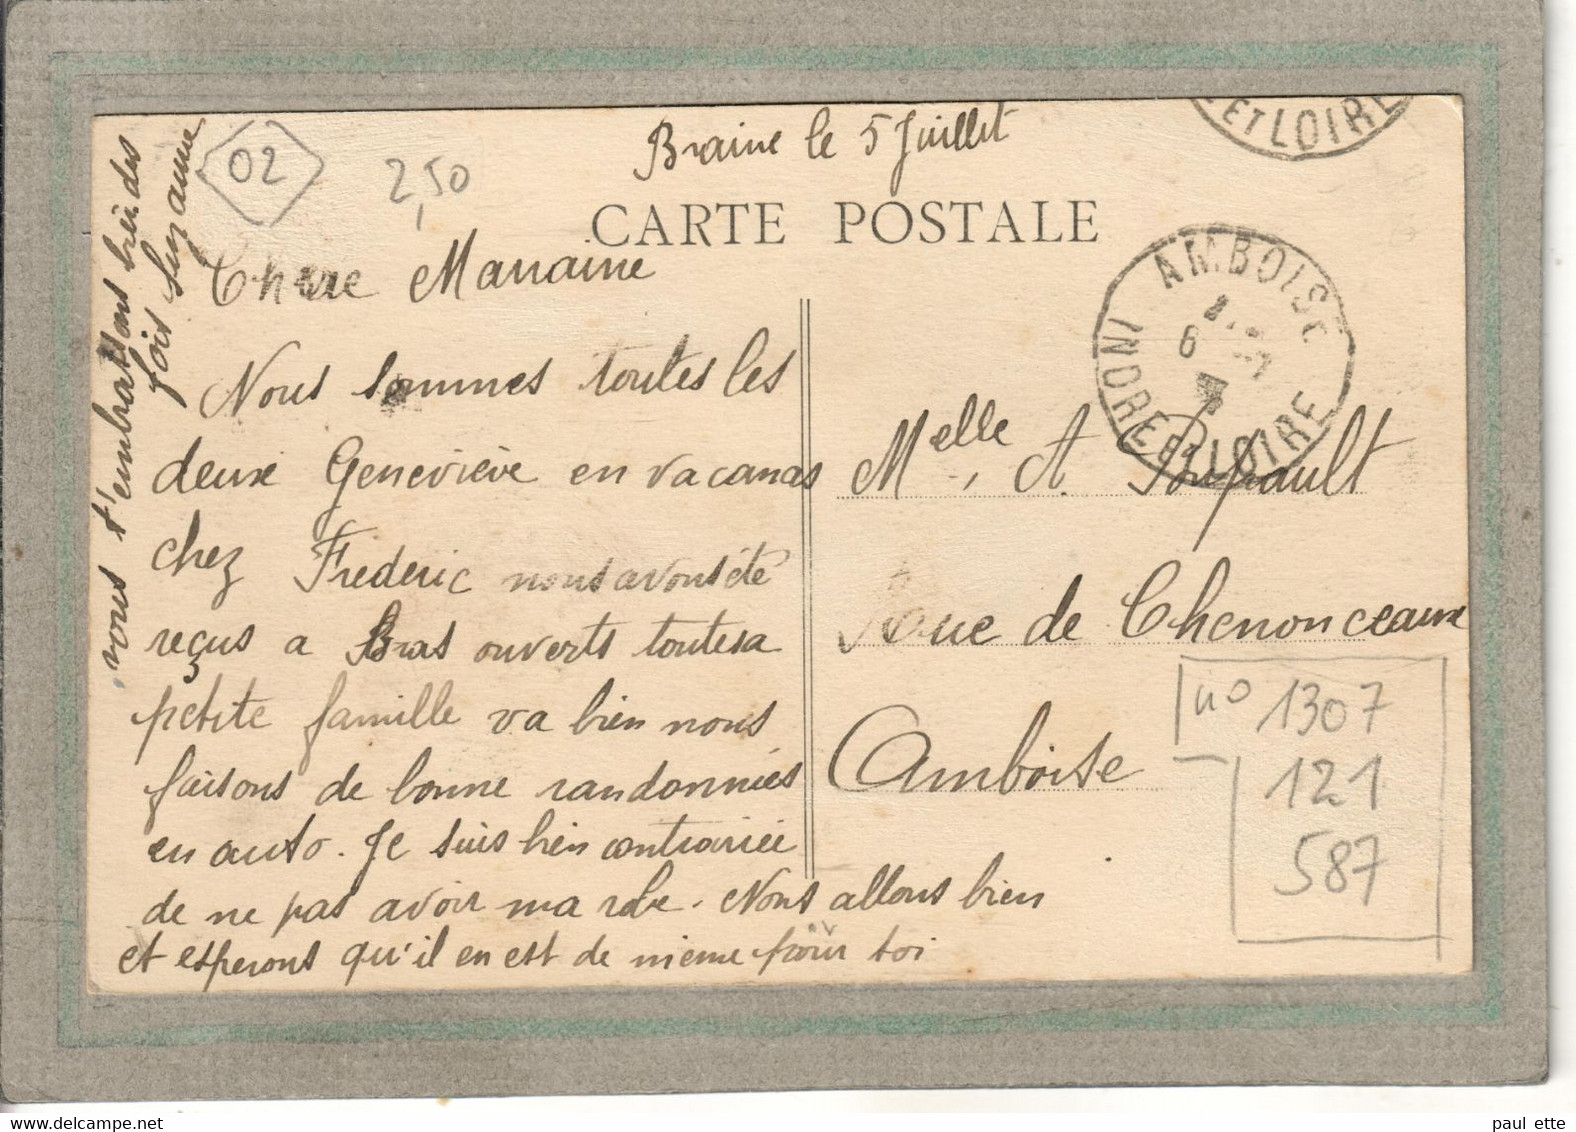 Braine le 5 Juillet
ET LOIRE
02
2,50
CARTE POSTALE
AMBOISE
6 -7
INDRE ET LOIRE
Chere Marraine
Nous sommes toutes les
deux Geneviève en vacanas
chez Frederic nous avons été
reçus a Bras ouverts toute sa
petite famille va bien nous
faisons de bonne randonnées
en auto. Je suis bien contrariée
de ne pas avoir ma robe. Nous allons bien
et esperons qu'il en est de même pour toi
nous t'embrassons bien des
fois Suzanne
Melle A. Poupault
Rue de Chenonceaux
Amboise
no 1307
121
587
paul ette